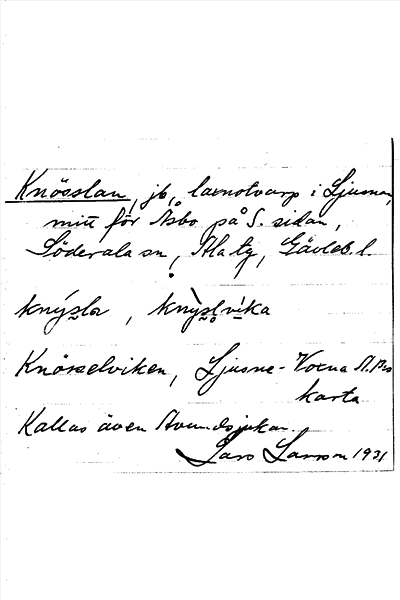 Knösslan, jb, laxnotvarp i Ljusnan,
mitt för Åsbo på S. sidan,
Söderala sn, Ala tg, Gävleb. l.
knýsla, knỳslvíka
Knösselviken, Ljusne-Voxna A.B:s
karta
Kallas även Avundsjukan.
Lars Larsson 1931